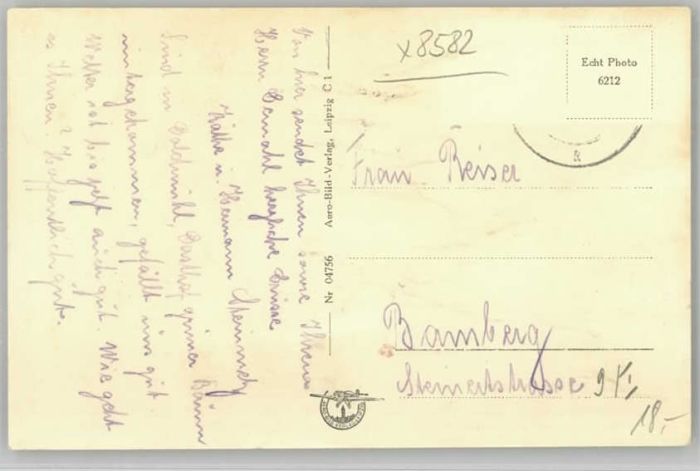 x8582
Echt Photo
6212
Von hier sendet Ihnen sowie Ihrem
Herrn Gemahl herzliche Grüsse
Käthe u. Hermann Steinmetz
Sind in Goldmühl, Gasthof grüner Baum
untergekommen, gefällt uns gut
Wetter ist bis jetzt auch gut. Wie geht
es Ihnen? Hoffentlich gut.
Nr 04756 Aero-Bild-Verlag, Leipzig C 1
Frau Reiser
Bamberg
9
18,-